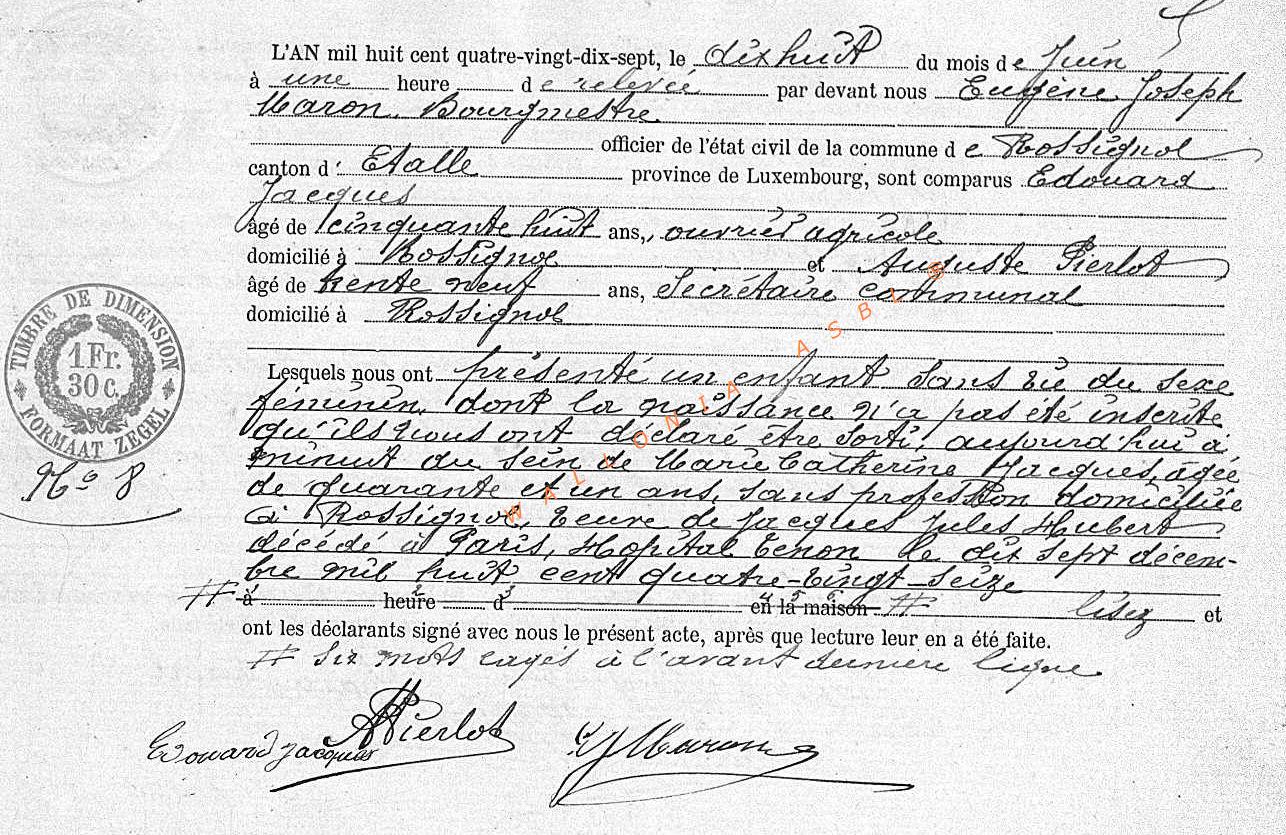 L'AN mil huit cent quatre-vingt-dix-sept, le dix huit du mois de Juin
à une heure de relevée par devant nous Eugène Joseph
Maron, Bourgmestre
officier de l'état civil de la commune de Rossignol
canton d' Etalle province de Luxembourg, sont comparus Edouard
Jacques
âgé de cinquante huit ans, ouvrier agricole
domicilié à Rossignol et Auguste Pierlot
âgé de trente neuf ans, Secrétaire communal
domicilié à Rossignol
TIMBRE DE DIMENSION
1 Fr.
30 c.
FORMAAT ZEGEL
No 8
Lesquels nous ont présenté un enfant sans vie du sexe
féminin, dont la naissance n'a pas été inscrite
qu'ils nous ont déclaré être sorti, aujourd'hui à
minuit du sein de Marie Catherine Jacques, agée
de quarante et un ans, sans profession domiciliée
à Rossignol, veuve de Jacques Jules Hubert
décédé à Paris, Hopital Tenon le dix sept décem-
bre mil huit cent quatre-vingt-seize
# à heure d en la maison # lisez et
ont les déclarants signé avec nous le présent acte, après que lecture leur en a été faite.
# Six mots rayés à l'avant dernière ligne
Edouard Jacques APierlot EJMaron
WALLONIA ASBL